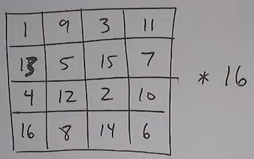 1 9 3 11
13 5 15 7 * 16
4 12 2 10
16 8 14 6